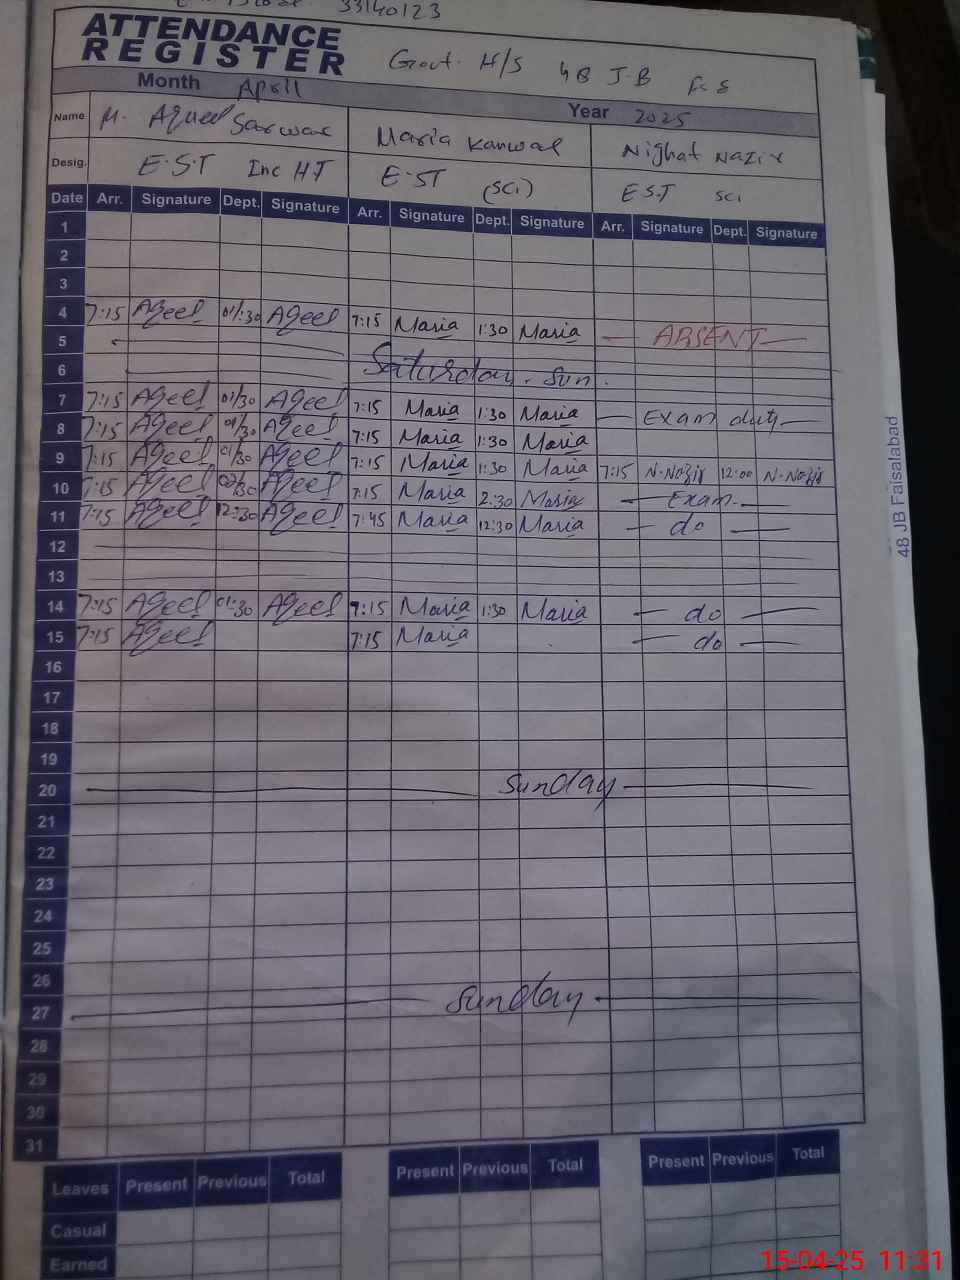 33140123
ATTENDANCE
REGISTER
Govt. H/S 48 J-B
Month April Year 2025
Name M. Aqeel Sarwar Maria Kanwal Nighat Nazir
Desig. E.S.T Inc HT E-ST (SCI) E.S.T SCI
Date Arr. Signature Dept. Signature Arr. Signature Dept. Signature Arr. Signature Dept. Signature
1
2
3
4 7:15 Aqeel 01:30 Aqeel 7:15 Maria 1:30 Maria — ABSENT —
5
6 Saturday. Sun.
7 7:15 Aqeel 01:30 Aqeel 7:15 Maria 1:30 Maria — Exam duty —
8 7:15 Aqeel 01:30 Aqeel 7:15 Maria 1:30 Maria
9 7:15 Aqeel 01:30 Aqeel 7:15 Maria 1:30 Maria 7:15 N.Nazir 12:00 N.Nazir
10 7:15 Aqeel Aqeel 7:15 Maria 2:30 Maria — Exam —
11 7:15 Aqeel 12:30 Aqeel 7:45 Maria 12:30 Maria — do —
12
13
14 7:15 Aqeel 01:30 Aqeel 7:15 Maria 1:30 Maria — do —
15 7:15 Aqeel 7:15 Maria — do —
16
17
18
19
20 Sunday
21
22
23
24
25
26
27 Sunday
28
29
30
31
Leaves Present Previous Total Present Previous Total Present Previous Total
Casual
Earned
48 JB Faisalabad
15-04-25 11:31